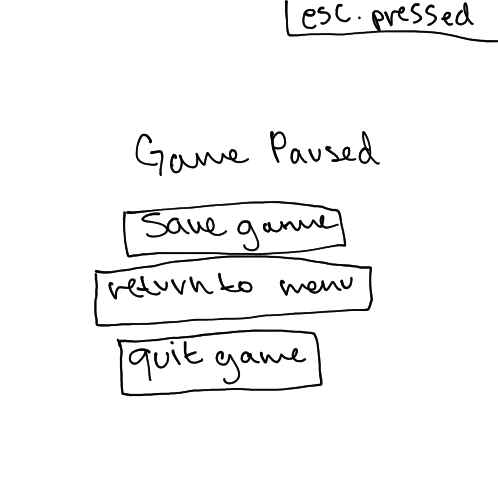 esc.pressed
Game Paused
Save game
return to menu
quit game